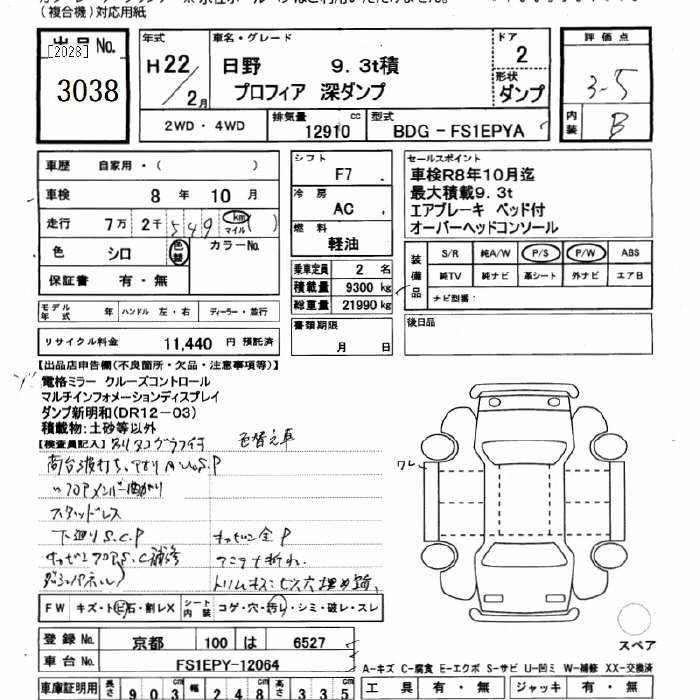 (複合機)対応用紙
出品 No.
[2028]
3038
年式 H22/2月
車名・グレード 日野 9.3t積
プロフィア 深ダンプ
ドア 2
形状 ダンプ
評価点 3-5
内装 B
2WD・4WD 排気量 12910 cc 型式 BDG-FS1EPYA
車歴 自家用・( )
車検 8年 10月
走行 7万 2千 549 km マイル ( )
色 シロ 色替 カラーNo.
保証書 有・無
シフト F7
冷房 AC
燃料 軽油
乗車定員 2 名
積載量 9300 kg
総重量 21990 kg
書類期限 月 日
セールスポイント
車検R8年10月迄
最大積載9.3t
エアブレーキ ベッド付
オーバーヘッドコンソール
装備品 S/R 純A/W P/S P/W ABS
純TV 純ナビ 革シート 外ナビ エアB
ナビ型番:
後日品
モデル年式 年 ハンドル 左・右 ディーラー・並行
リサイクル料金 11,440 円 預託済
【出品店申告欄(不良箇所・欠品・注意事項等)】
電格ミラー クルーズコントロール
マルチインフォメーションディスプレイ
ダンプ新明和(DR12-03)
積載物:土砂等以外
【検査員記入】 色替え車
スタッドレス
下廻りS.C.P
FW キズ・トビ石・割レX シート内装 コゲ・穴・汚レ・シミ・破レ・スレ
登録No. 京都 100 は 6527
車台No. FS1EPY-12064
車庫証明用 長さ 903 cm 幅 248 cm 高さ 335 cm
スペア
A-キズ C-腐食 E-エクボ S-サビ U-凹ミ W-補修 XX-交換済
工具 有・無 ジャッキ 有・無